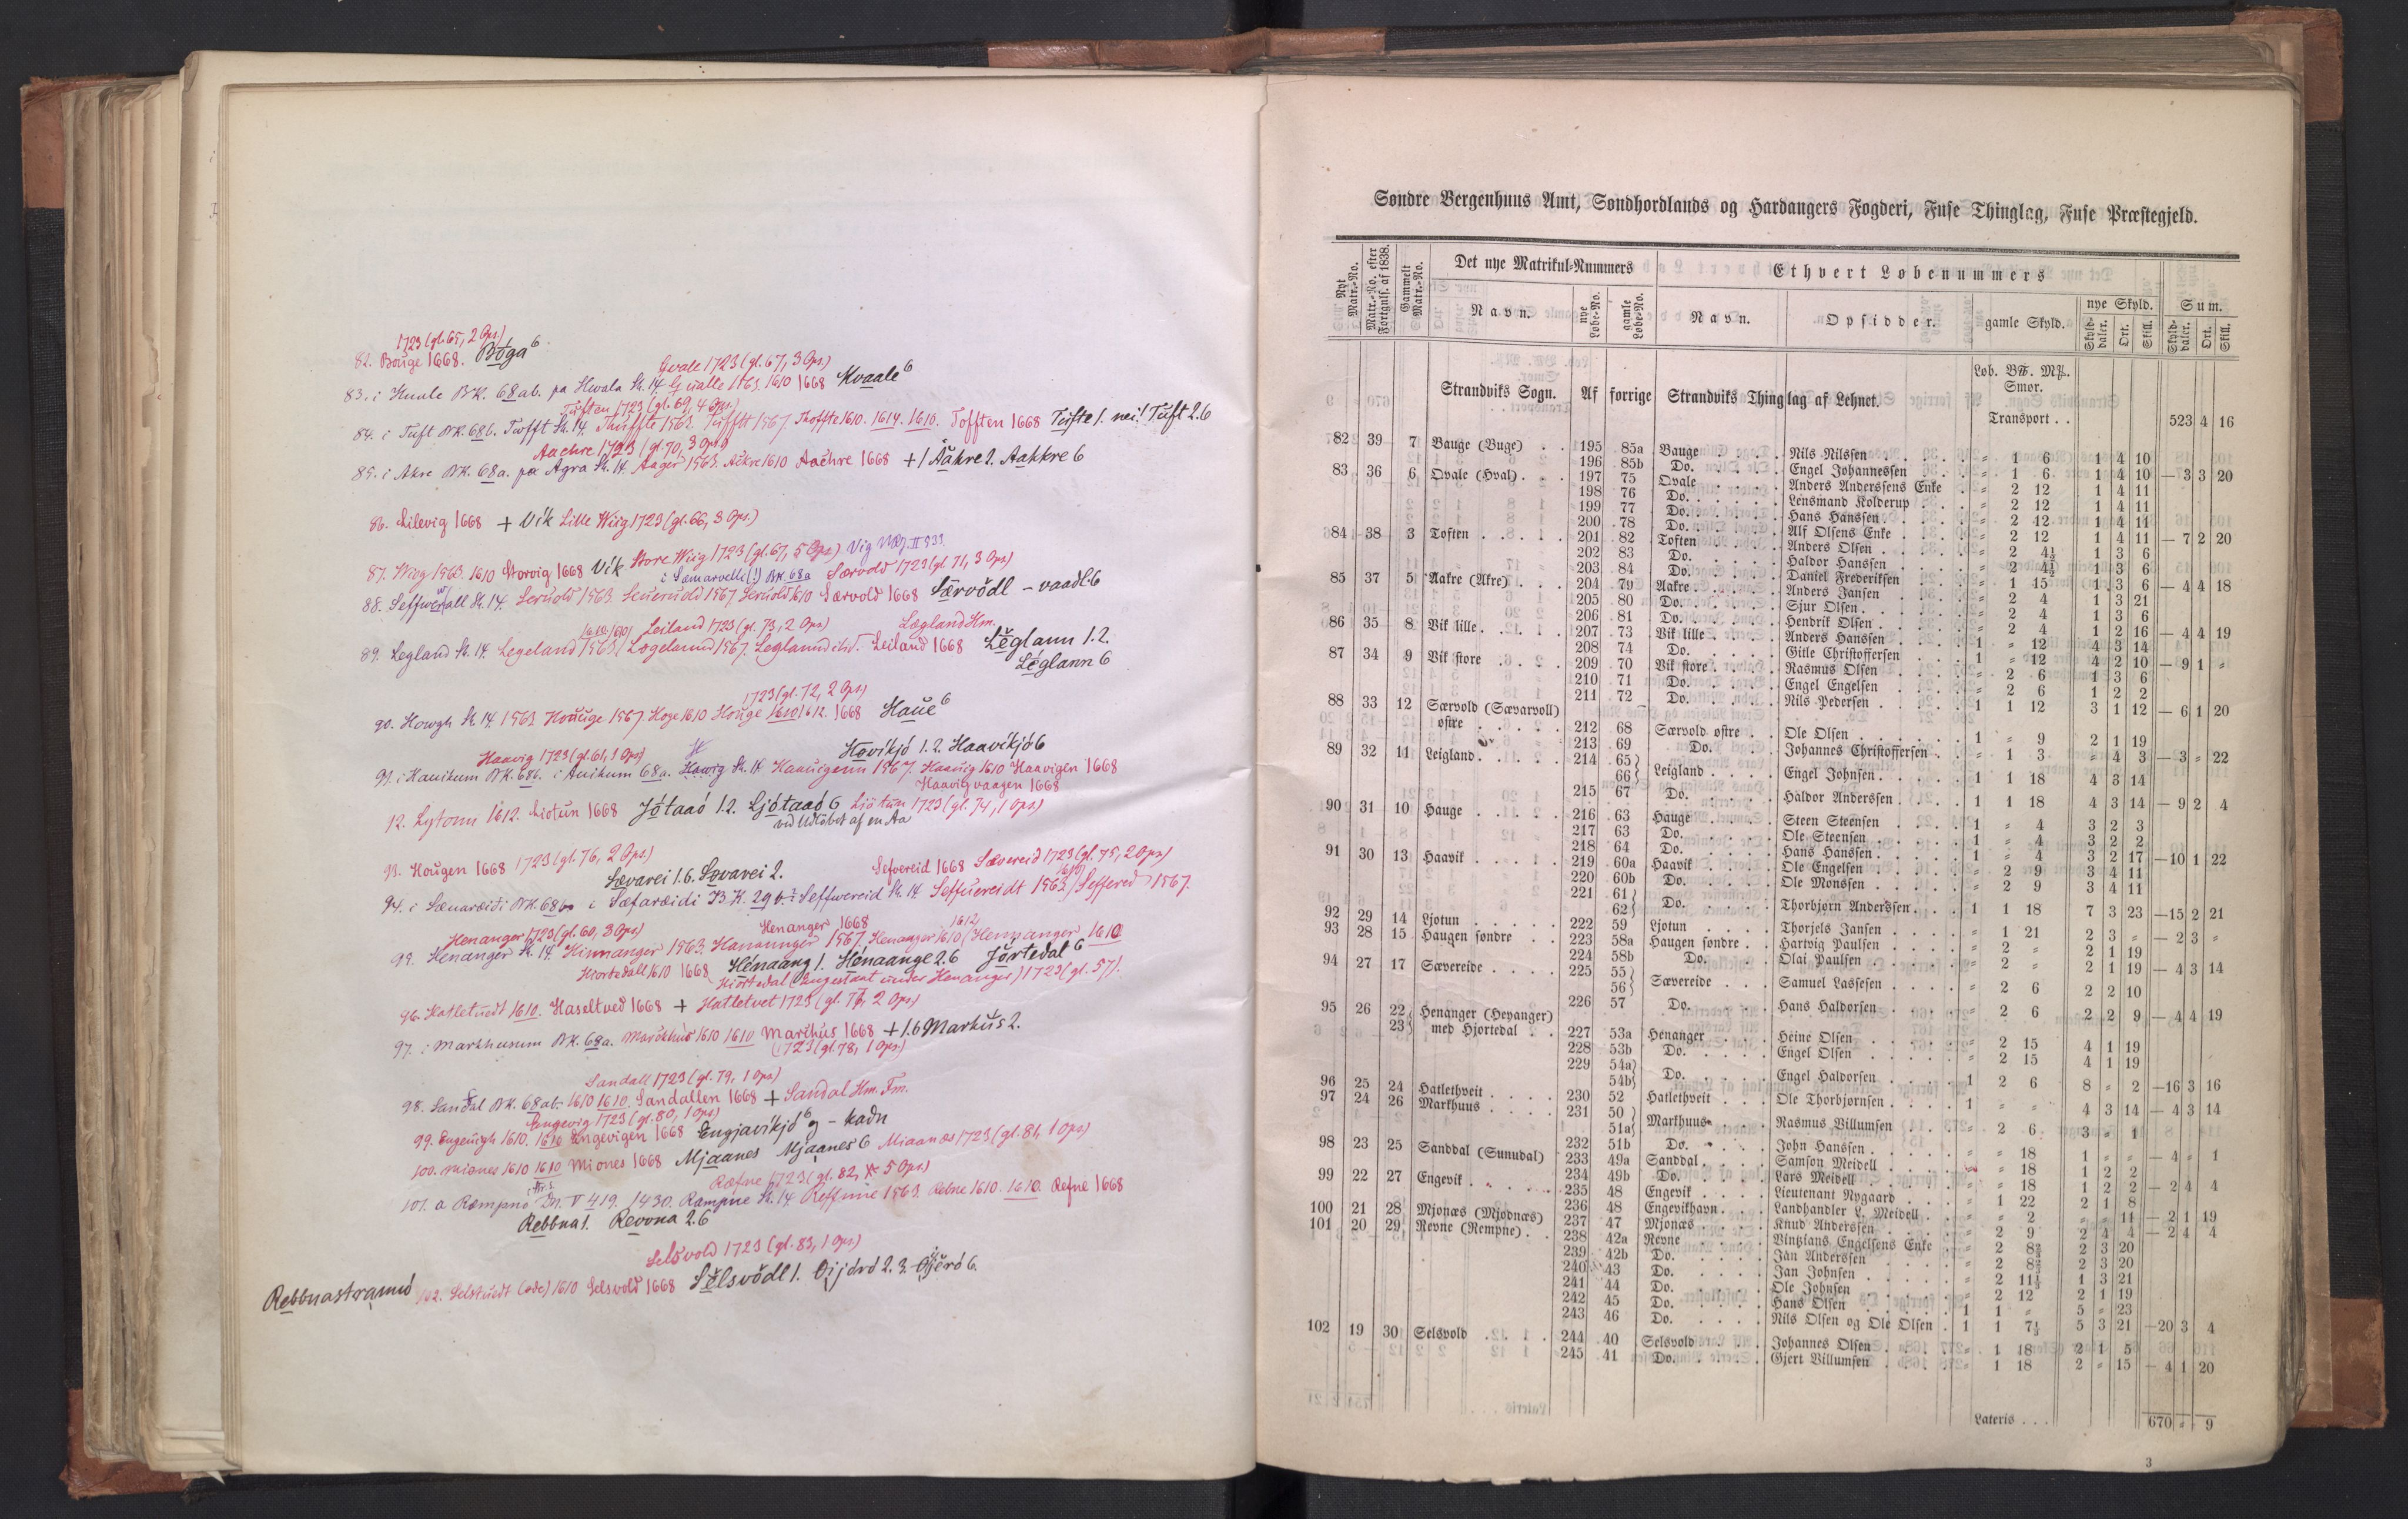 1723 (gl. 65, 2 Ops.)
82. Bouge 1668. Bóga 6
Qvale 1723 (gl. 67, 3 Ops.)
83. i Huale BK. 68ab. pa Hwala St. 14. Qualle 1563. 1610 1668 Kvaale 6
Tuften 1723 (gl. 69, 4 Ops.)
84. i Tuft BK. 68b. Twfft St. 14. Thuffte 1563. Tufftt 1567. Thoffte 1610. 1614. 1610. Tofften 1668 Tufte 1. nei! Tuft 2.6
Aachre 1723 (gl. 70, 3 Ops.)
85. i Akre BK. 68a. pa Agra St. 14. Aager 1563. Ackre 1610 Aachre 1668 + 1 Aahre 2. Aahkre 6
86. Lilevig 1668 + Vik Lille Wiig 1723 (gl. 66, 3 Ops.)
87. Wiog 1563. 1610 Storvig 1668 Vik Store Wiig 1723 (gl. 67, 5 Ops.) Vig NRJ. II 533
i Sæmarvelli (!) BK. 68a Særvold 1723 (gl. 71, 3 Ops)
88. Seffwerall St. 14. Seruold 1563. Seueruold 1567 Seruold 1610 Særvold 1668 Særvödl – vaadl 6
1610 1610 Leiland 1723 (gl. 73, 2 Ops) Lægland Hm.
89. Legland St. 14. Legeland 1563. Løgelannd 1567. Leglannd ibid. Leiland 1668 Léglann 1.2.
Léglann 6
1723 (gl. 72, 2 Ops)
90. Howgh St. 14. 1563. Houuge 1567. Hoge 1610 Houge 1610 1612. 1668 Haue 6
Haavig 1723 (gl. 61, 1 Ops) Hovikjó 1.2. Haavikjó 6
91. i Hauikum BK. 68b. i Auikum 68a. Hawig St. 14 Haauigenn 1567. Haauig 1610 Haavigen 1668
Haavig vaagen 1668
12. Lytonn 1612. Liotun 1668 Jótaaó 1.2. Ljótaaó 6 Liotun 1723 (gl. 74, 1 Ops)
ved Udløbet af en Aa
93. Hougen 1668 1723 (gl. 76, 2 Ops.)
Sævarei 1.6. Sovarei 2. Sefvereid 1668 Sævereid 1723 (gl. 75, 2 Ops)
94. i Sæuaræiði BK. 68b i Sæfaræidi B.K. 29b. i Seffwereid St. 14. Seffuereidt 1563. Seffered 1567.
Henanger 1723 (gl. 60, 3 Ops) Henanger 1668 1612
95. Henanger St. 14. Hinnanger 1563. Hanaunger 1567. Henanger 1610 (Hennanger 1610
Hiortedall 1610 1668 Hénaang 1. Hónaange 2.6 Jórtedal 6
Hiortedal (Angestent under Henanger) 1723 (gl. 57).
96. Hatletuedt 1610. Haseltved 1668 + Hatletvet 1723 (gl. 77, 2 Ops)
97. i Markhusum BK. 68a. Marckhus 1610 1610 Marchus 1668 + 1.6 Markús 2.
1723 (gl. 78, 1 Ops.)
Sandall 1723 (gl. 79, 1 Ops)
98. Sandal BK. 68ab. 1610 1610. Sandallen 1668 + Sandal Hm. Fm.
Engevig 1723 (gl. 80, 1 Ops)
99. Engeuigh 1610. 1610 Engevigen 1668 Engjavikjó 6 og – kadn
100. Mianes 1610 1610 Miones 1668 Mjaanes Mjaanes 6 Miaanæs 1723 (gl. 81, 1 Ops)
Ræfne 1723 (gl. 82, 5 Ops.)
101. a Ræmpno Dn. V 419. 1430. Rampne St. 14. Reffnne 1563. Rebne 1610. 1610. Refne 1668
Rebbna 1. Revona 2.6
Selsvold 1723 (gl. 83, 1 Ops)
Rebbnastramó 102. Selstuedt (øde) 1610 Selsvold 1668 Sölsvödl 1. Oijóró 2.3. Ojeró 6.
Søndre Bergenhuus Amt, Søndhordlands og Hardangers Fogderi, Fuse Thinglag, Fuse Præstegjeld.
Nyt Matr.-No. Matr.-No. efter Fortgnls. af 1838. Gammelt Matr.-No. Det nye Matrikul-Nummers Ethvert Løbenummers
Navn. nye Løbe-No. gamle Løbe-No. Navn. Opsidder. gamle Skyld. nye Skyld. Sum.
Skylddaler. Ort. Skill. Skylddaler. Ort. Skill.
Strandviks Sogn. Af forrige Strandviks Thinglag af Lehnet. Løb. B℔. M℔. Smør.
Transport . . 523 4 16
82 39 7 Bauge (Buge) . . 195 85a Bauge . . . . Nils Nilssen . . . " 1 6 1 4 10
196 85b Do. . . . . Engel Johannessen . " 1 6 1 4 10 — 3 3 20
83 36 6 Qvale (Hval) . . . 197 75 Qvale . . . . Anders Anderssens Enke . " 2 12 1 4 11
198 76 Do. . . . . Lensmand Kolderup . . " 2 12 1 4 11
199 77 Do. . . . . Hans Hanssen . . . " 2 12 1 4 11
200 78 Do. . . . . Alf Olsens Enke . . " 2 12 1 4 11 — 7 2 20
84 38 3 Toften . . . . 201 82 Toften . . . . Anders Olsen . . . " 2 4½ 1 3 6
202 83 Do. . . . . Haldor Hanssen . . . " 2 4½ 1 3 6
203 84 Do. . . . . Daniel Frederiksen . . " 1 15 1 3 6 — 4 4 18
85 37 5 Aakre (Akre) . . . 204 79 Aakre . . . . Anders Jansen . . . " 2 4 1 3 21
205 80 Do. . . . . Sjur Olsen . . . . " 2 4 1 3 6
206 81 Do. . . . . Hendrik Olsen . . . " 2 4 1 2 16 — 4 4 19
86 35 8 Vik lille . . . . 207 73 Vik lille . . . . Anders Hanssen . . . 1 " 12 4 3 14
208 74 Do. . . . . Gitle Christoffersen . . 1 " 12 4 2 10 — 9 1 "
87 34 9 Vik store . . . . 209 70 Vik store . . . . Rasmus Olsen . . . " 2 6 1 3 6
210 71 Do. . . . . Engel Engelsen . . . " 2 6 1 2 2
211 72 Do. . . . . Nils Pedersen . . . 1 1 12 3 1 12 — 6 1 20
88 33 12 Særvold (Sævarvoll)
østre . . . . . 212 68 Særvold østre . . Ole Olsen . . . . 1 " 9 2 1 19
213 69 Do. . . Johannes Christoffersen . " 1 3 " 4 3 — 3 " 22
89 32 11 Leigland . . . . 214 65 66 Leigland . . . . Engel Johnsen . . . 1 1 18 4 3 14
215 67 Do. . . . . Haldor Anderssen . . . 1 1 18 4 3 14 — 9 2 4
90 31 10 Hauge . . . . 216 63 Hauge . . . . Steen Steensen . . . 1 " 4 3 2 3
217 63 Do. . . . . Ole Steensen . . . 1 " 4 3 2 2
218 64 Do. . . . . Hans Hanssen . . . 1 " 4 3 2 17 — 10 1 22
91 30 13 Haavik . . . . 219 60a Haavik . . . . Ole Engelsen . . . " 2 9 3 4 11
220 60b Do. . . . . Ole Monssen . . . " 2 9 3 4 11
221 61 62 Do. . . . . Thorbjørn Anderssen . . 1 1 18 7 3 23 — 15 2 21
92 29 14 Ljotun . . . . 222 59 Ljotun . . . . Thorjels Jansen . . . " 1 21 2 3 " — 2 3 "
93 28 15 Haugen søndre . . 223 58a Haugen søndre . . Hartvig Paulsen . . . " 2 " 2 1 19
224 58b Do. . . Olai Paulsen . . . " 2 " 2 1 19 — 4 3 14
94 27 17 Sævereide . . . . 225 55 56 Sævereide . . . Samuel Lassesen . . . " 2 6 2 2 10
226 57 Do. . . . Hans Haldorsen . . . " 2 6 2 2 9 — 4 4 19
95 26 22 23 Henanger (Hevanger)
med Hjortedal . . 227 53a Henanger . . . Heine Olsen . . . " 2 15 4 1 19
228 53b Do. . . . . Engel Olsen . . . " 2 15 4 1 19
229 54a 54b Do. . . . . Engel Haldorsen . . . 1 2 6 8 " 2 — 16 3 16
96 25 24 Hatlethveit . . . . 230 52 Hatlethveit . . . Ole Thorbjørnsen . . . 1 " " 4 3 14 — 4 3 14
97 24 26 Markhuus . . . . 231 50 51a Markhuus . . . Rasmus Villumsen . . " 2 6 3 " 1
232 51b Do. . . . . John Hanssen . . . " " 18 1 " " — 4 " 1
98 23 25 Sanddal (Sunudal) 233 49a Sanddal . . . . Samson Meidell . . . " " 18 1 2 2
234 49b Do. . . . . Lars Meidell . . . " " 18 1 2 2 — 2 4 4
99 22 27 Engevik . . . . 235 48 Engevik . . . . Lieutenant Nygaard . . " 1 22 2 1 8
236 48 Engevikhavn . . . Landhandler L. Meidell . " " 2 " " 11 — 2 1 19
100 21 28 Mjonæs (Mjodnæs) 237 47 Mjonæs . . . . Knud Anderssen . . . " 2 9 2 4 4 — 2 4 4
101 20 29 Revne (Rempne) . . 238 42a Revne . . . . Vintzians Engelsens Enke . " 2 8⅔ 2 3 20
239 42b Do. . . . . Jan Anderssen . . . " 2 8⅔ 2 3 20
240 43 Do. . . . . Jan Johnsen . . . " 2 11⅓ 1 3 21
241 44 Do. . . . . Ole Johnsen . . . " 2 12 2 1 19
242 45 Do. . . . . Hans Olsen . . . 1 1 " 5 " 23
243 46 Do. . . . . Nils Olsen og Ole Olsen . 1 1 7⅓ 5 3 21 — 20 3 4
102 19 30 Selsvold . . . . 244 40 Selsvold . . . . Johannes Olsen . . . " 1 18 2 1 5
245 41 Do. . . . . Gjert Villumsen . . . " 1 18 2 " 15 — 4 1 20
Lateris . . . 670 " 9
3